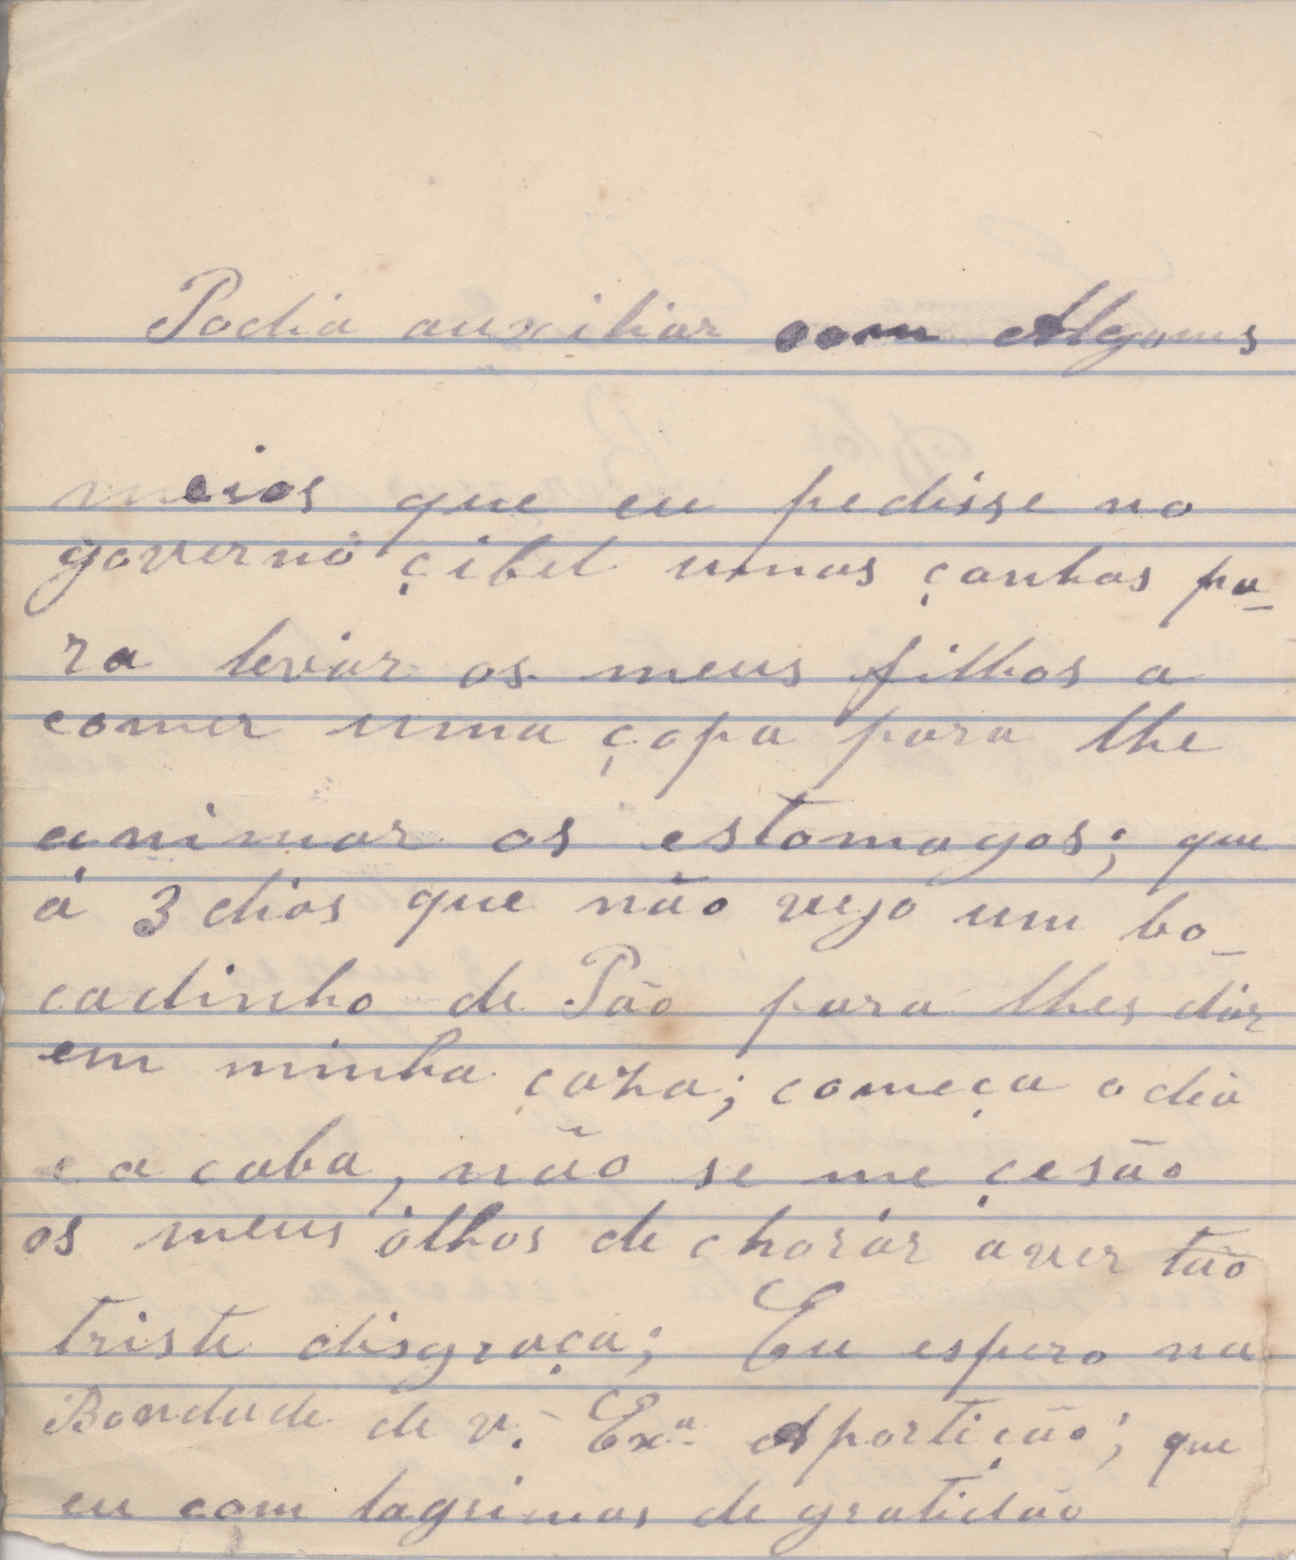 Podia auxiliar com Algums
meios que eu pedisse no
governo çibel umas çanhas pa-
ra levar os meus filhos a
comer uma çopa para lhe
animar os estomagos; que
á 3 dias que não vejo um bo-
cadinho de Pão para lhes dár
em minha çaza; começa o dia
e a caba, não se me çesão
os meus ólhos de chorár a ver tão
triste disgraça; Eu espero na
Bondade de v. Exª Aportiçáo; que
eu com lagrimas de gratidão